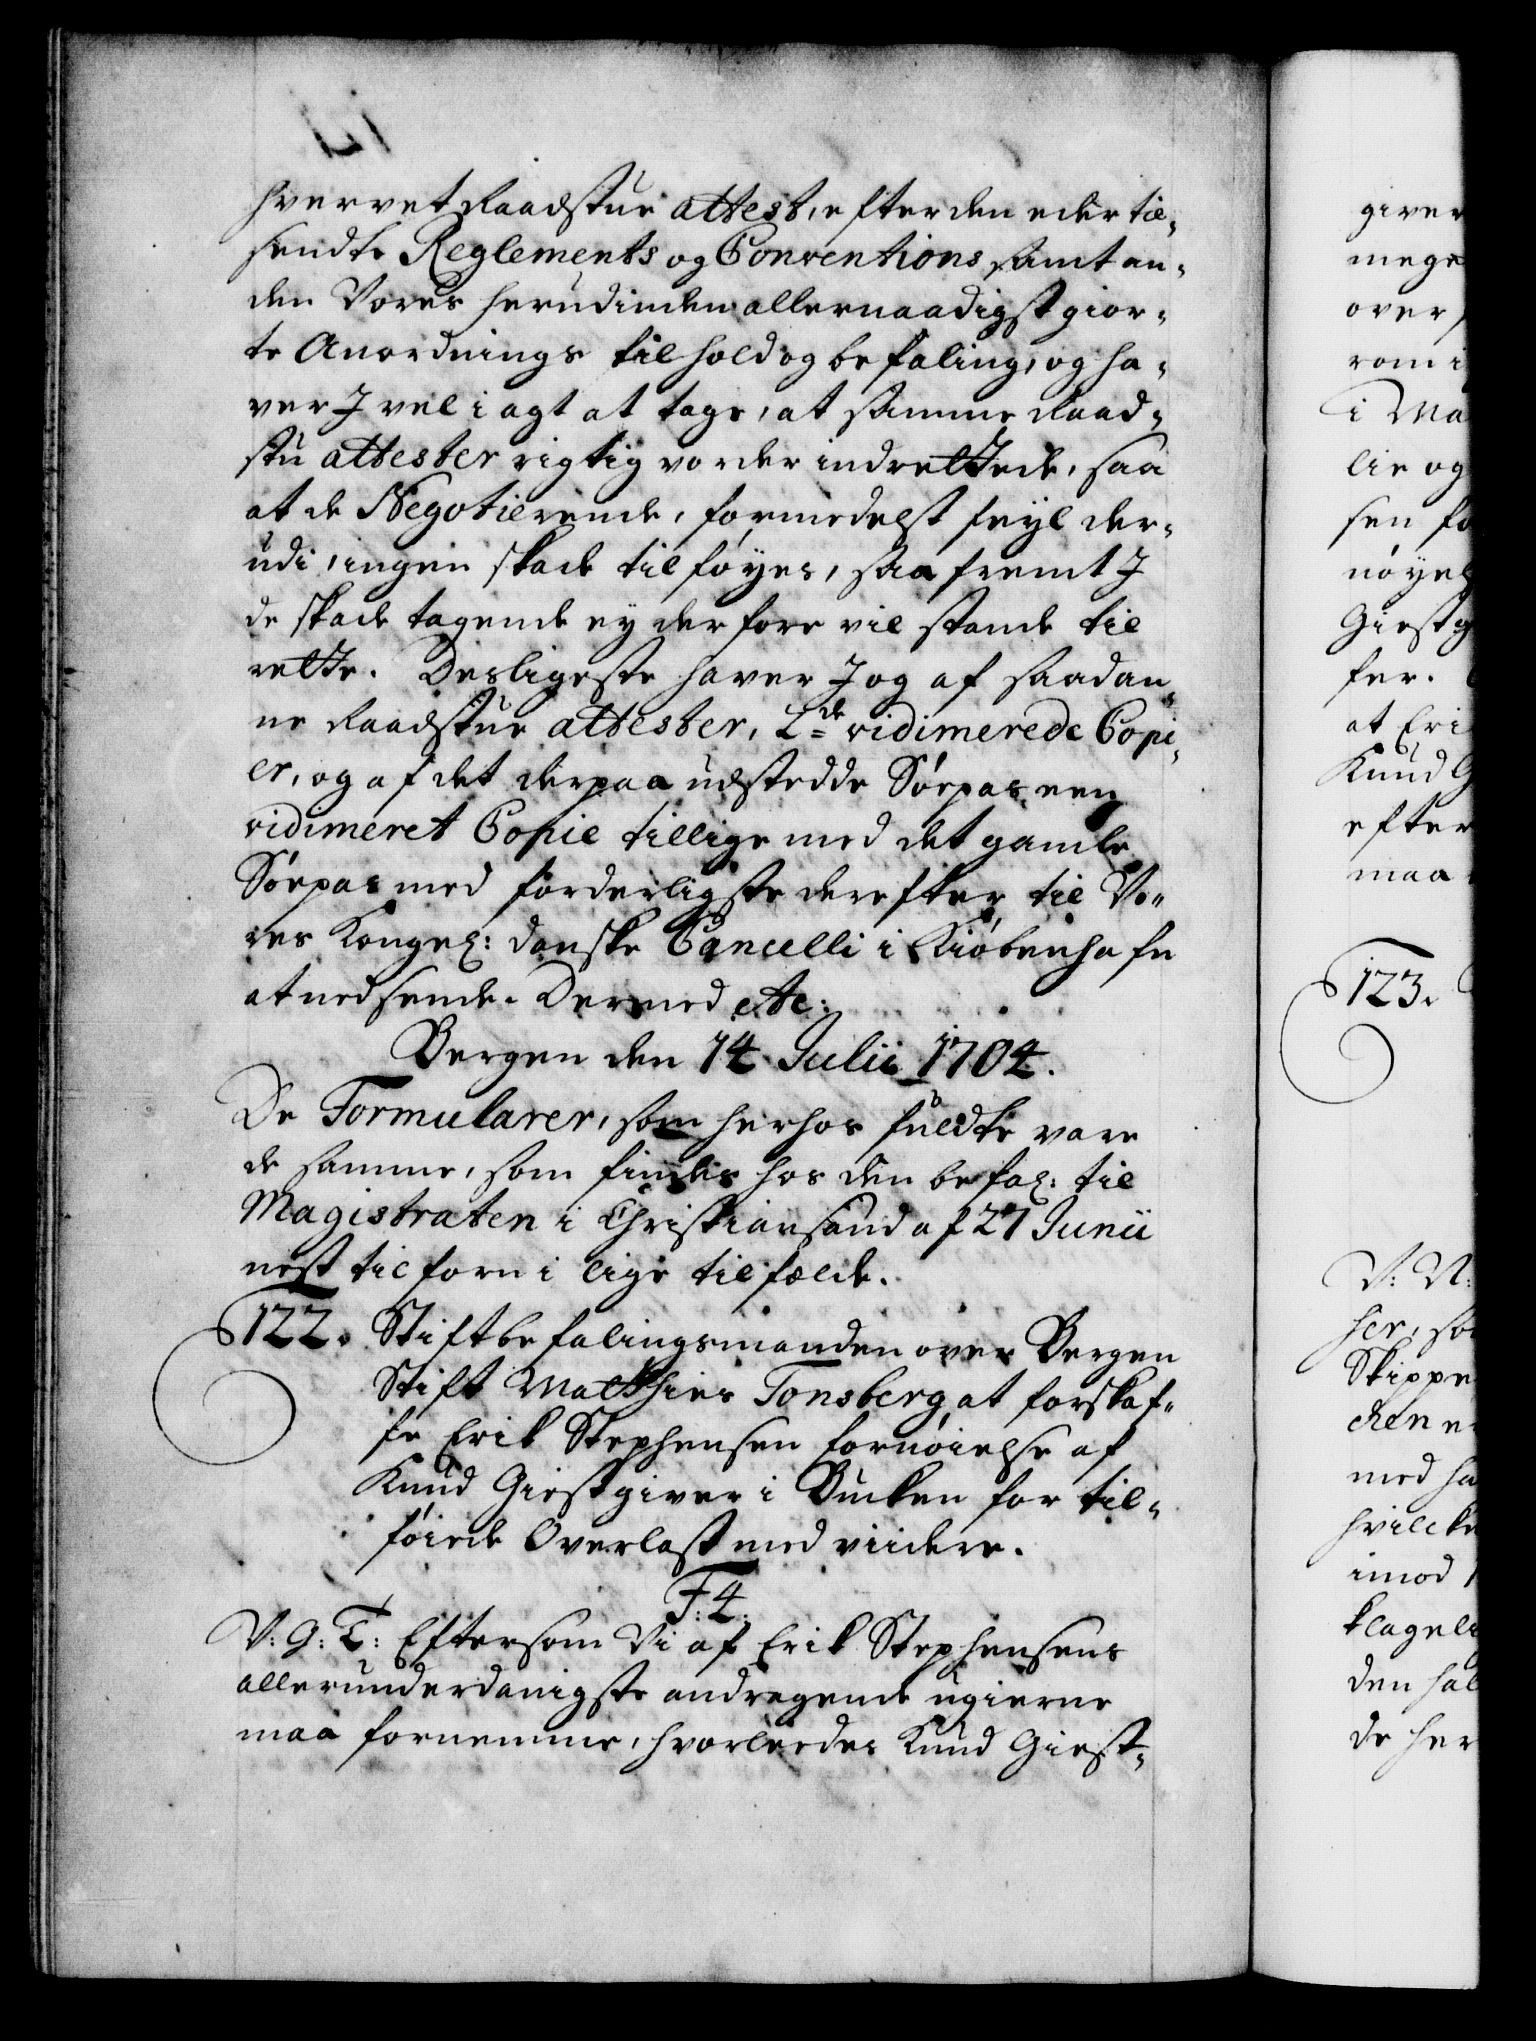 hvervet Raadstue attest, efter den eder til-
sendte Reglements og Conventions samt an-
den Vores herudinden allernaadigst gior-
te Anordnings tilhold og befaling, og ha-
ver I vel i agt at tage, at samme Raad-
stu attester rigtig vorder indrettede, saa
at de Negotierende, formedelst feyl der-
udi, ingen skade tilføyes, saafremt I
de skadetagende ey derfore vil stande til
rette. Desligeste haver I og af saadan-
ne Raadstue attester, 2de vidimerede Copi-
er, og af det derpaa udstedde Søepas een
vidimeret Copie tillige med det gamle
Søepas med forderligste derefter til Vo-
res Kongel: danske Cancelli i Kiøbenhafn
at nedsende. Dermed etc:
Bergen den 14 Julii 1704.
De Formularer, som herhos fuldte vare
de samme, som findes hos den befal: til
Magistraten i Christiansand af 27 Junii
nest tilforn i lige tilfælde.
122. Stiftbefalingsmanden over Bergen
Stift Matthies Tonsberg at forskaf-
fe Erik Stephensen fornøielse af
Knud Giestgiver i Bucken for til-
føiede Overlast med viidere.
F: 4.
V: G: T: Eftersom Vi af Erik Stephensens
allerunderdanigste andragende ugierne
maa fornemme, hvorleedes Knud Giest-
giver
mege
over
rom i
i Ma
lie og
sen fo
nøyel
Giestg
fer.
at Eri
Knud G
efter
maa
123.
V: N:
her, so
Skippe
chen e
med ha
hvilcke
imod
klagel
den hal
de her